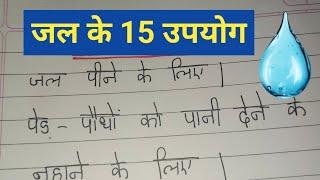 जल के 15 उपयोग
जल पीने के लिए।
पेड़ - पौधों को पानी देने के
नहाने के लिए।